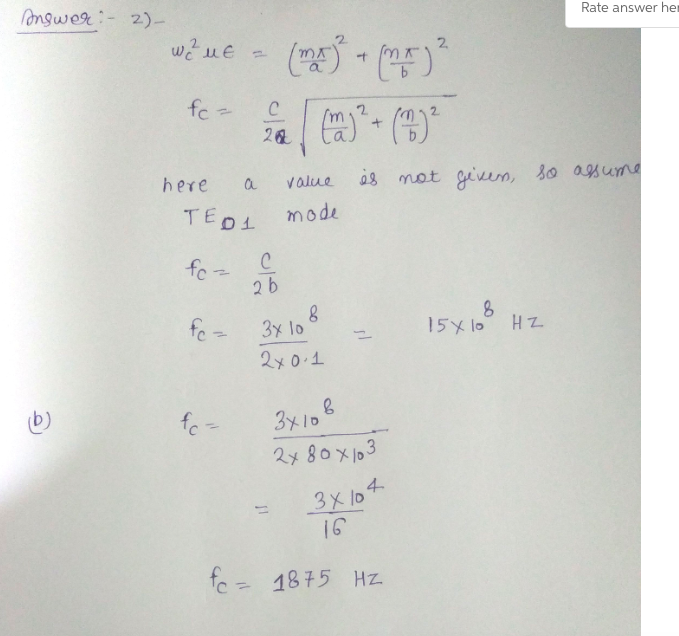 Rate answer her
Answer :- 2)-
ωc² με = (mπ/a)² + (nπ/b)²
fc = c/2 √((m/a)² + (n/b)²)
here a value is not given, so assume
TE01 mode
fc = c/2b
fc = 3×10⁸/2×0.1 = 15×10⁸ HZ
(b) fc = 3×10⁸/2×80×10³
= 3×10⁴/16
fc = 1875 HZ